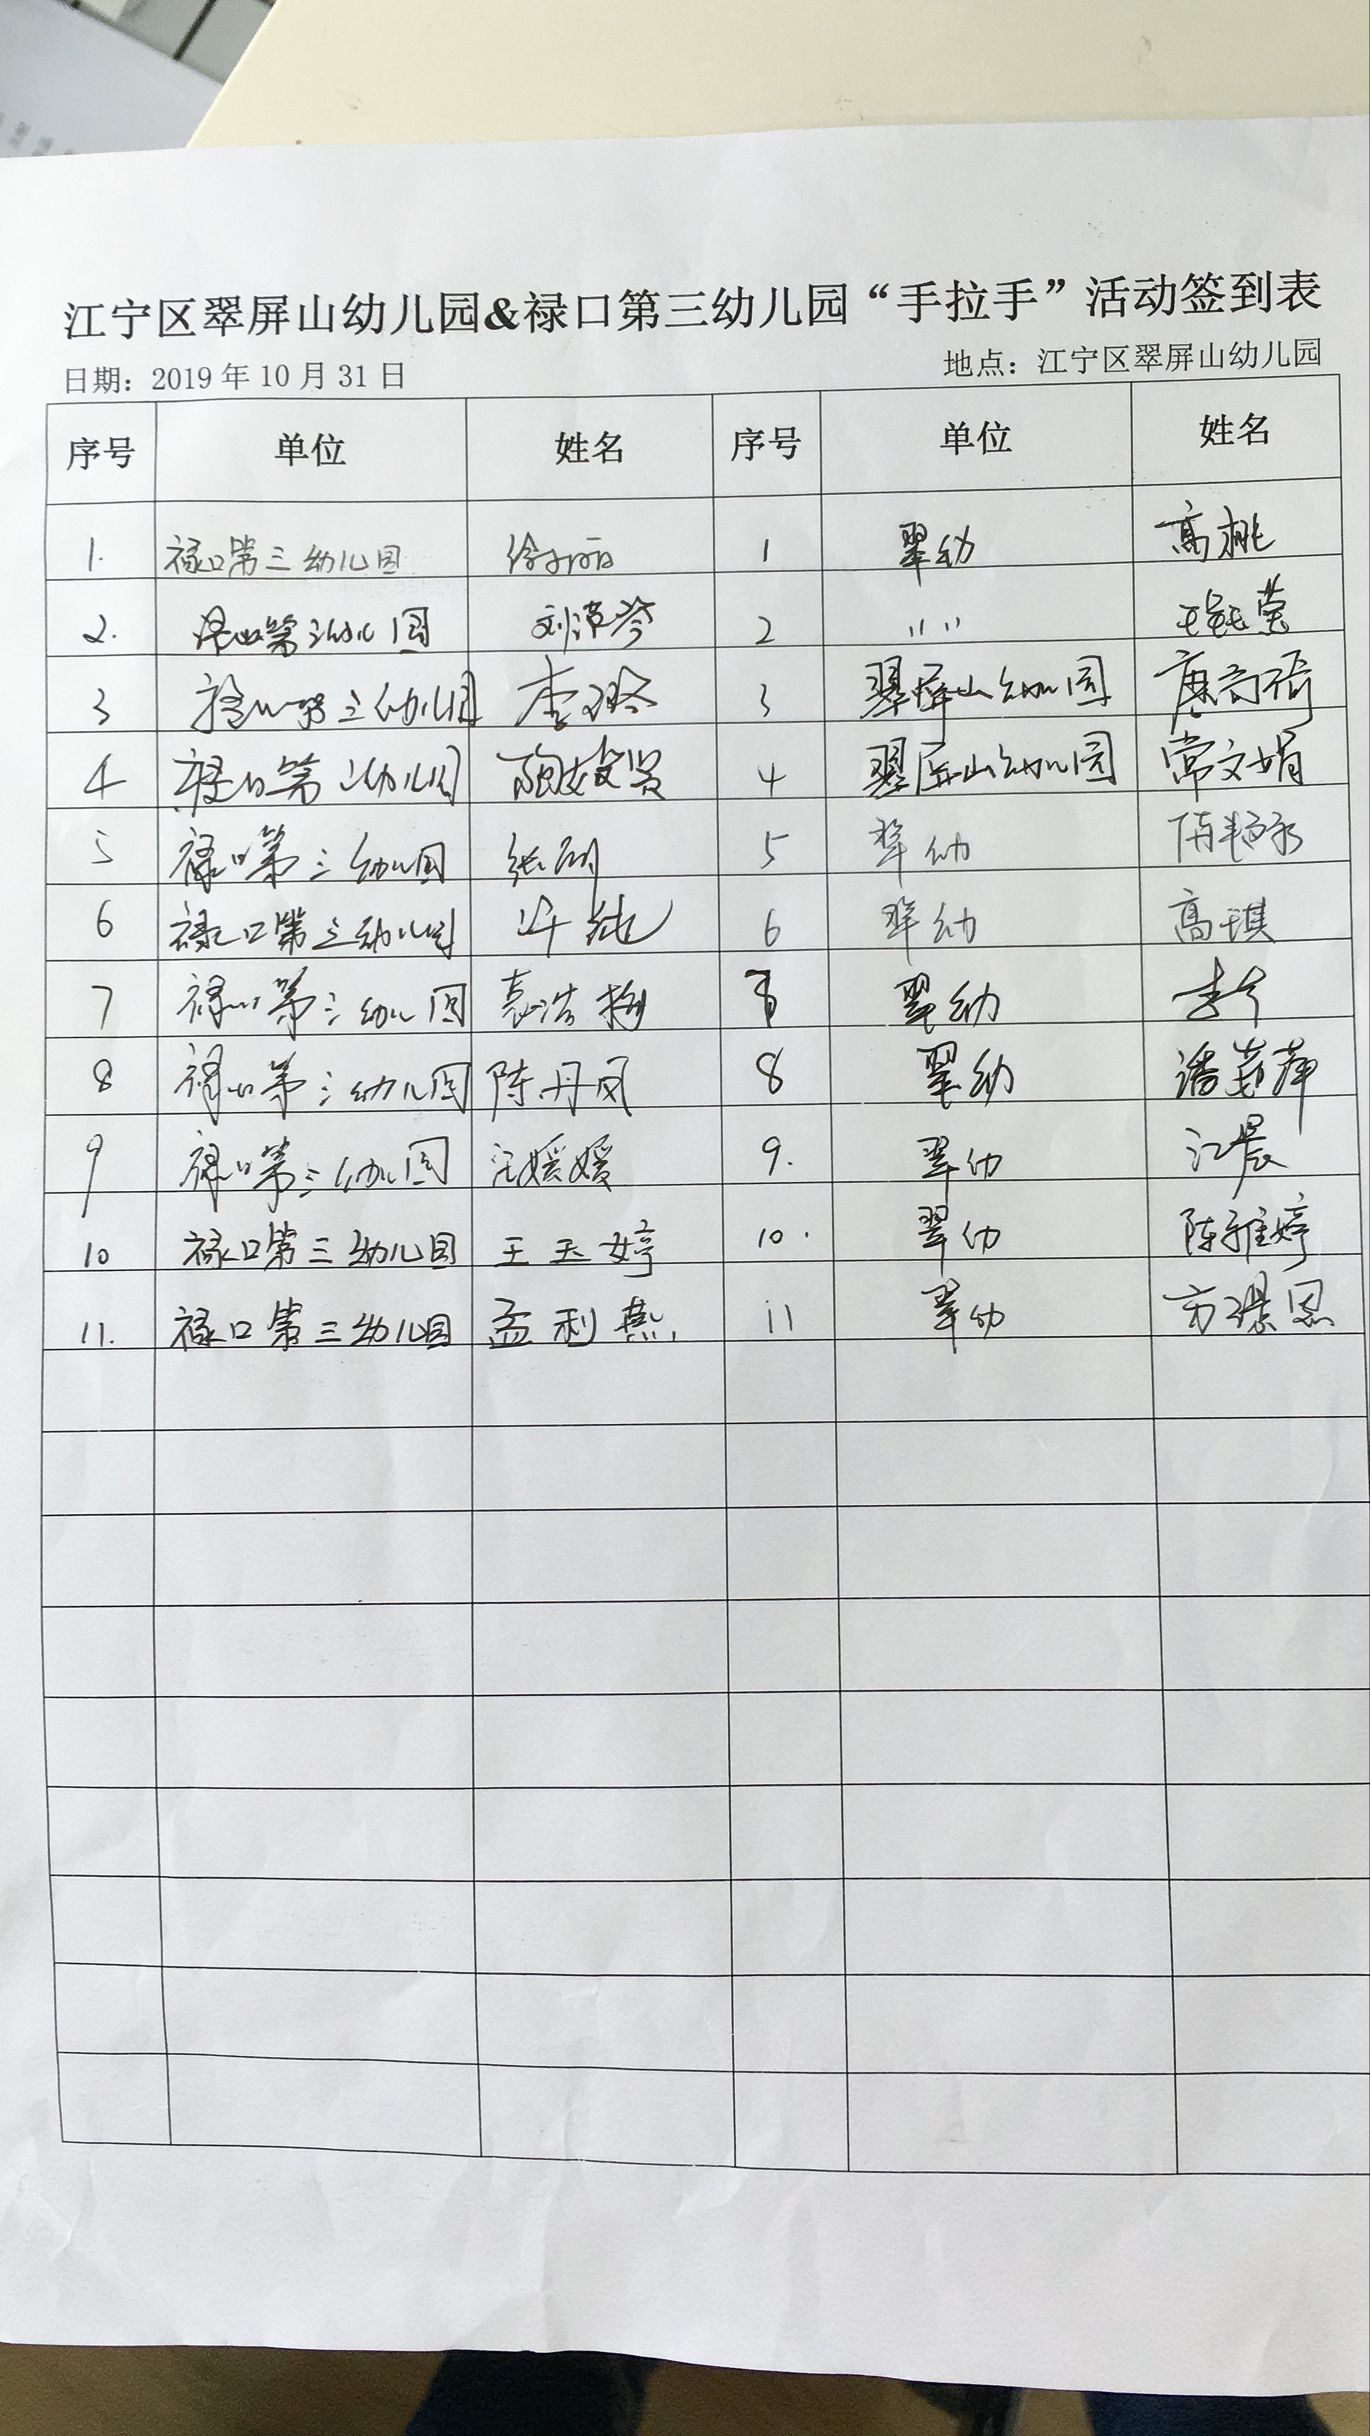 江宁区翠屏山幼儿园&禄口第三幼儿园“手拉手”活动签到表
日期：2019年10月31日 地点：江宁区翠屏山幼儿园
序号 单位 姓名 序号 单位 姓名
1. 禄口第三幼儿园 徐丽 1 翠幼 高桃
2. 禄口第三幼儿园 2 〃〃
3 禄口第三幼儿园 李玲 3 翠屏山幼儿园
4 禄口第三幼儿园 4 翠屏山幼儿园 常文娟
5 禄口第三幼儿园 5 翠幼
6 禄口第三幼儿园 许純 6 翠幼 高琪
7 禄口第三幼儿园 7 翠幼 李今
8 禄口第三幼儿园 陈丹凤 8 翠幼
9 禄口第三幼儿园 汪媛媛 9. 翠幼 江晨
10 禄口第三幼儿园 王玉婷 10. 翠幼 陈雅婷
11. 禄口第三幼儿园 孟利燕 11 翠幼 方璟恩